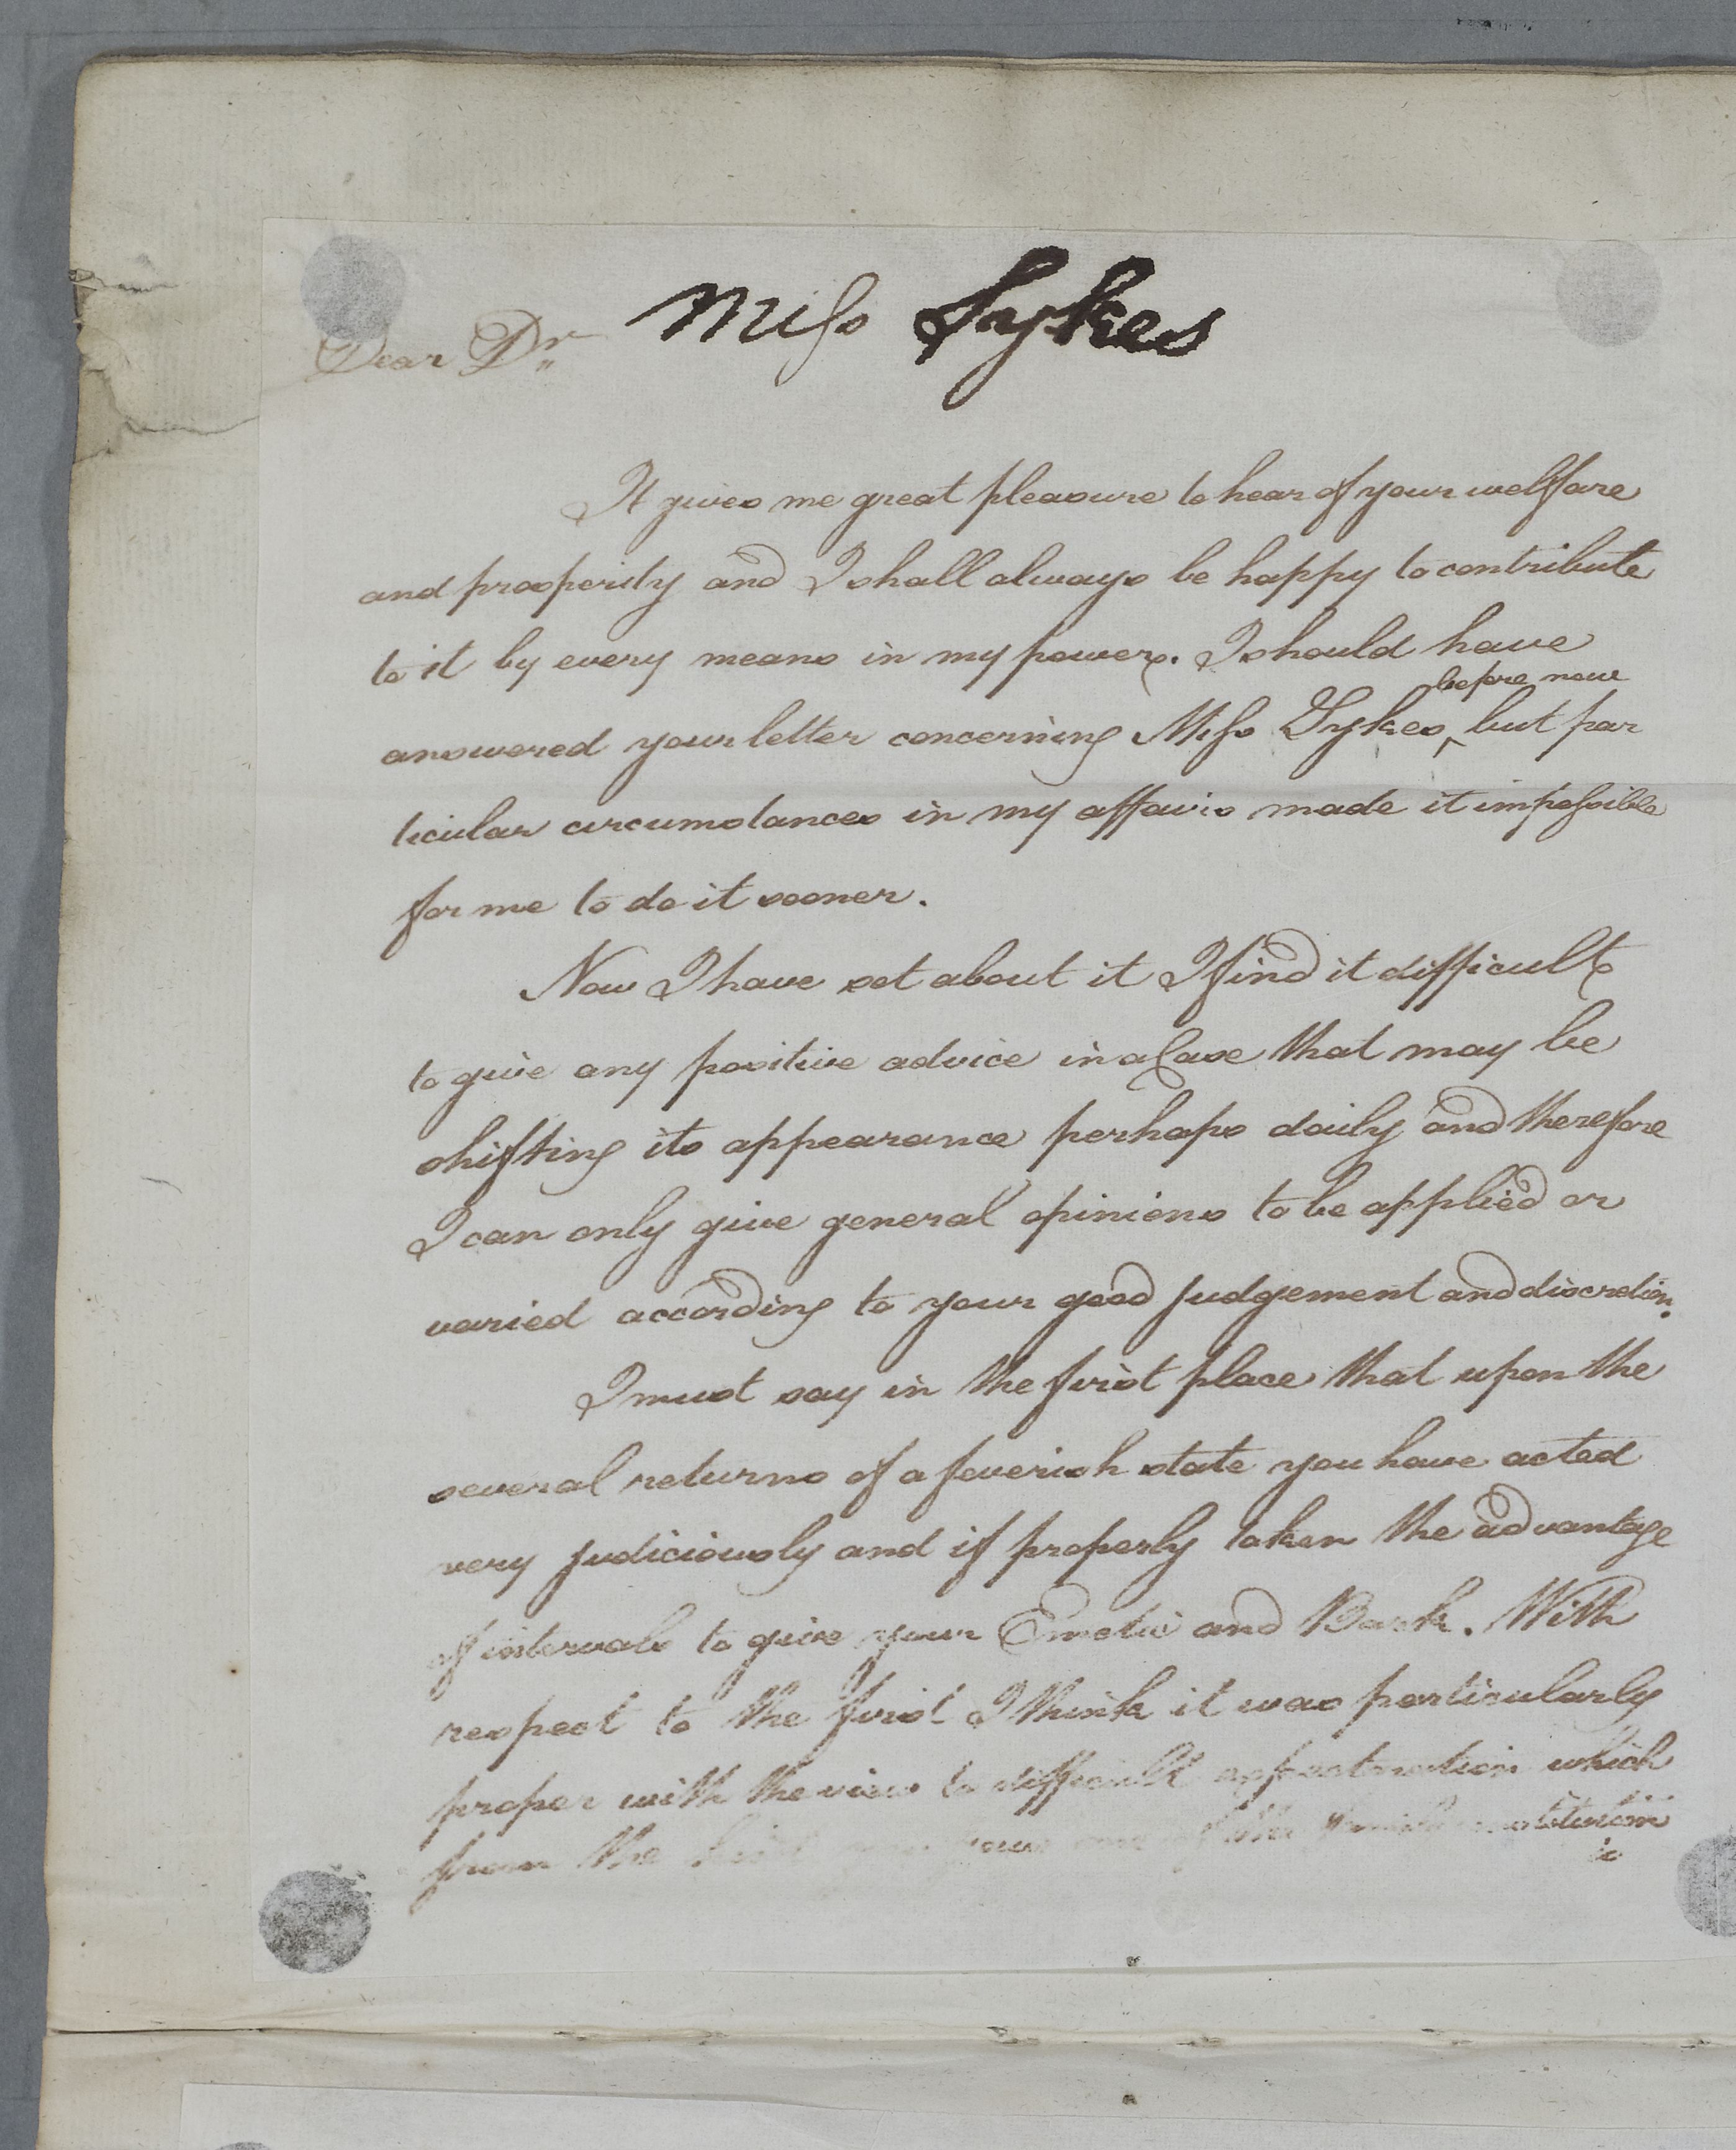 Miss Sykes
Dear Dr.
It gives me great pleasure to hear of your welfare
and prosperity and I shall always be happy to contribute
to it by every means in my power. I should have
before now
answered your letter concerning Miss Sykes ‸ but par
ticular circumstances in my affairs made it impossible
for me to do it sooner.
Now I have set about it I find it difficult
to give any positive advice in a Case that may be
shifting its appearance perhaps daily and therefore
I can only give general opinions to be applied or
varied according to your good judgement and discretion.
I must say in the first place that upon the
several returns of a feverish state you have acted
very judiciously and if properly taken the advantage
of intervals to give your Emetic and Bark. With
respect to the first I think it was particularly
proper with the view to difficult expectoration which
from the
is